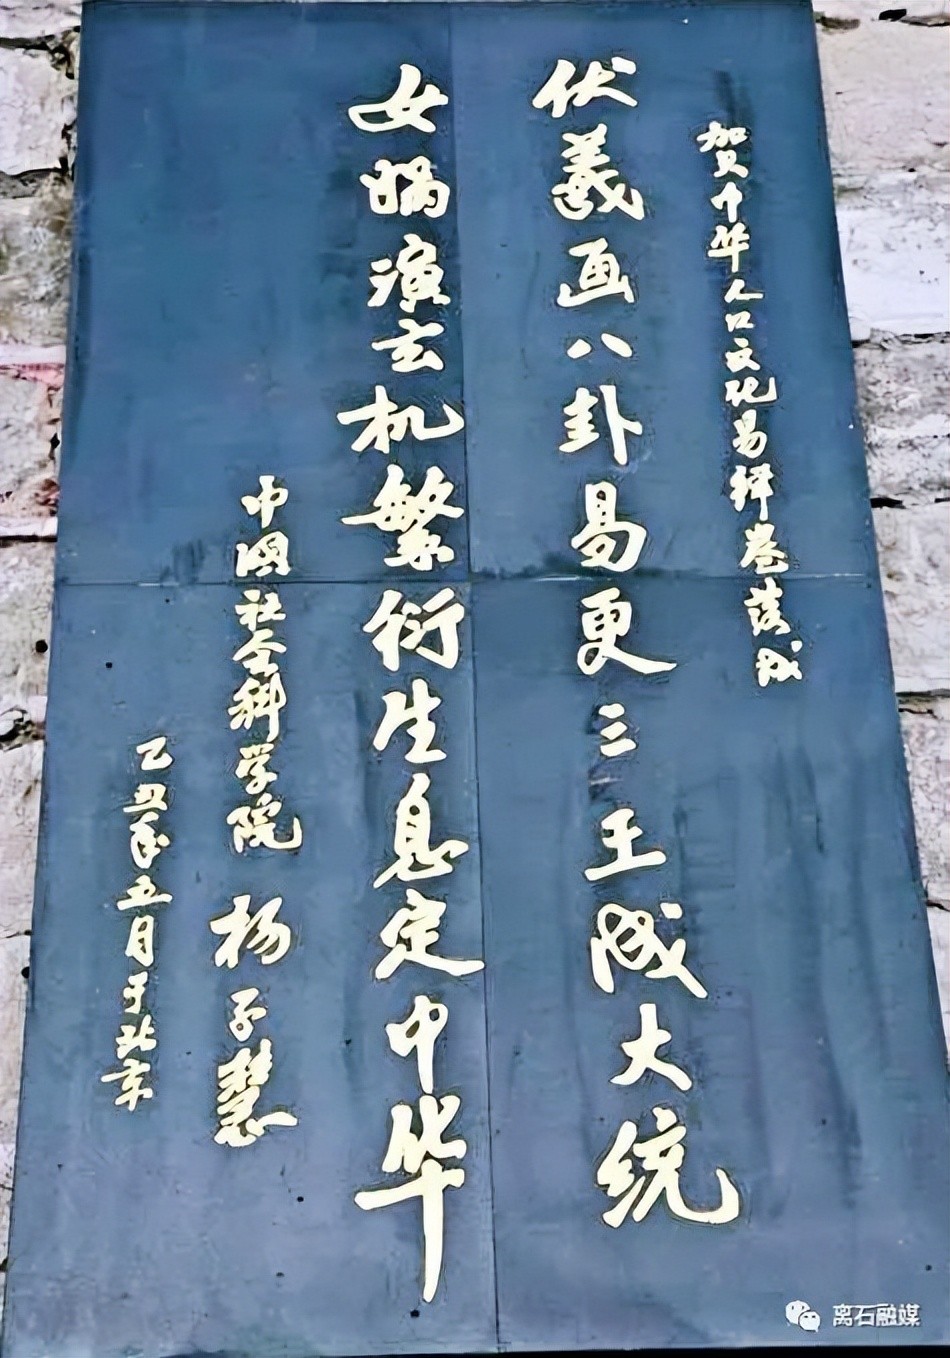 贺中华人口文化易拜卷落成
伏羲画八卦易更三王成大统
女娲演玄机繁衍生息定中华
中国社会科学院 杨子慧
乙丑年五月于北京
离石融媒